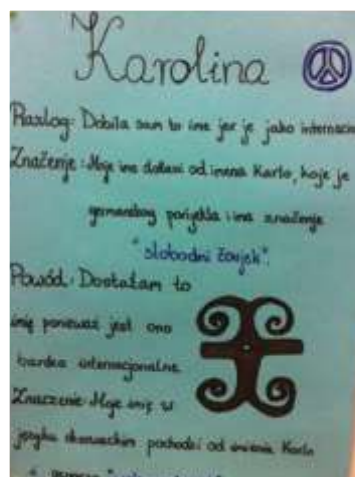 Karolina
Razlog: Dobila sam to ime jer je jako internacio
Značenje: Moje ime dolazi od imena Karlo, koje je
germanskog porijekla i ima značenje
"slobodni čovjek".
Powód: Dostałam to
imię ponieważ jest ono
bardzo internacjonalne.
Znaczenie: Moje imię w
języku chorwackim pochodzi od imienia Karlo